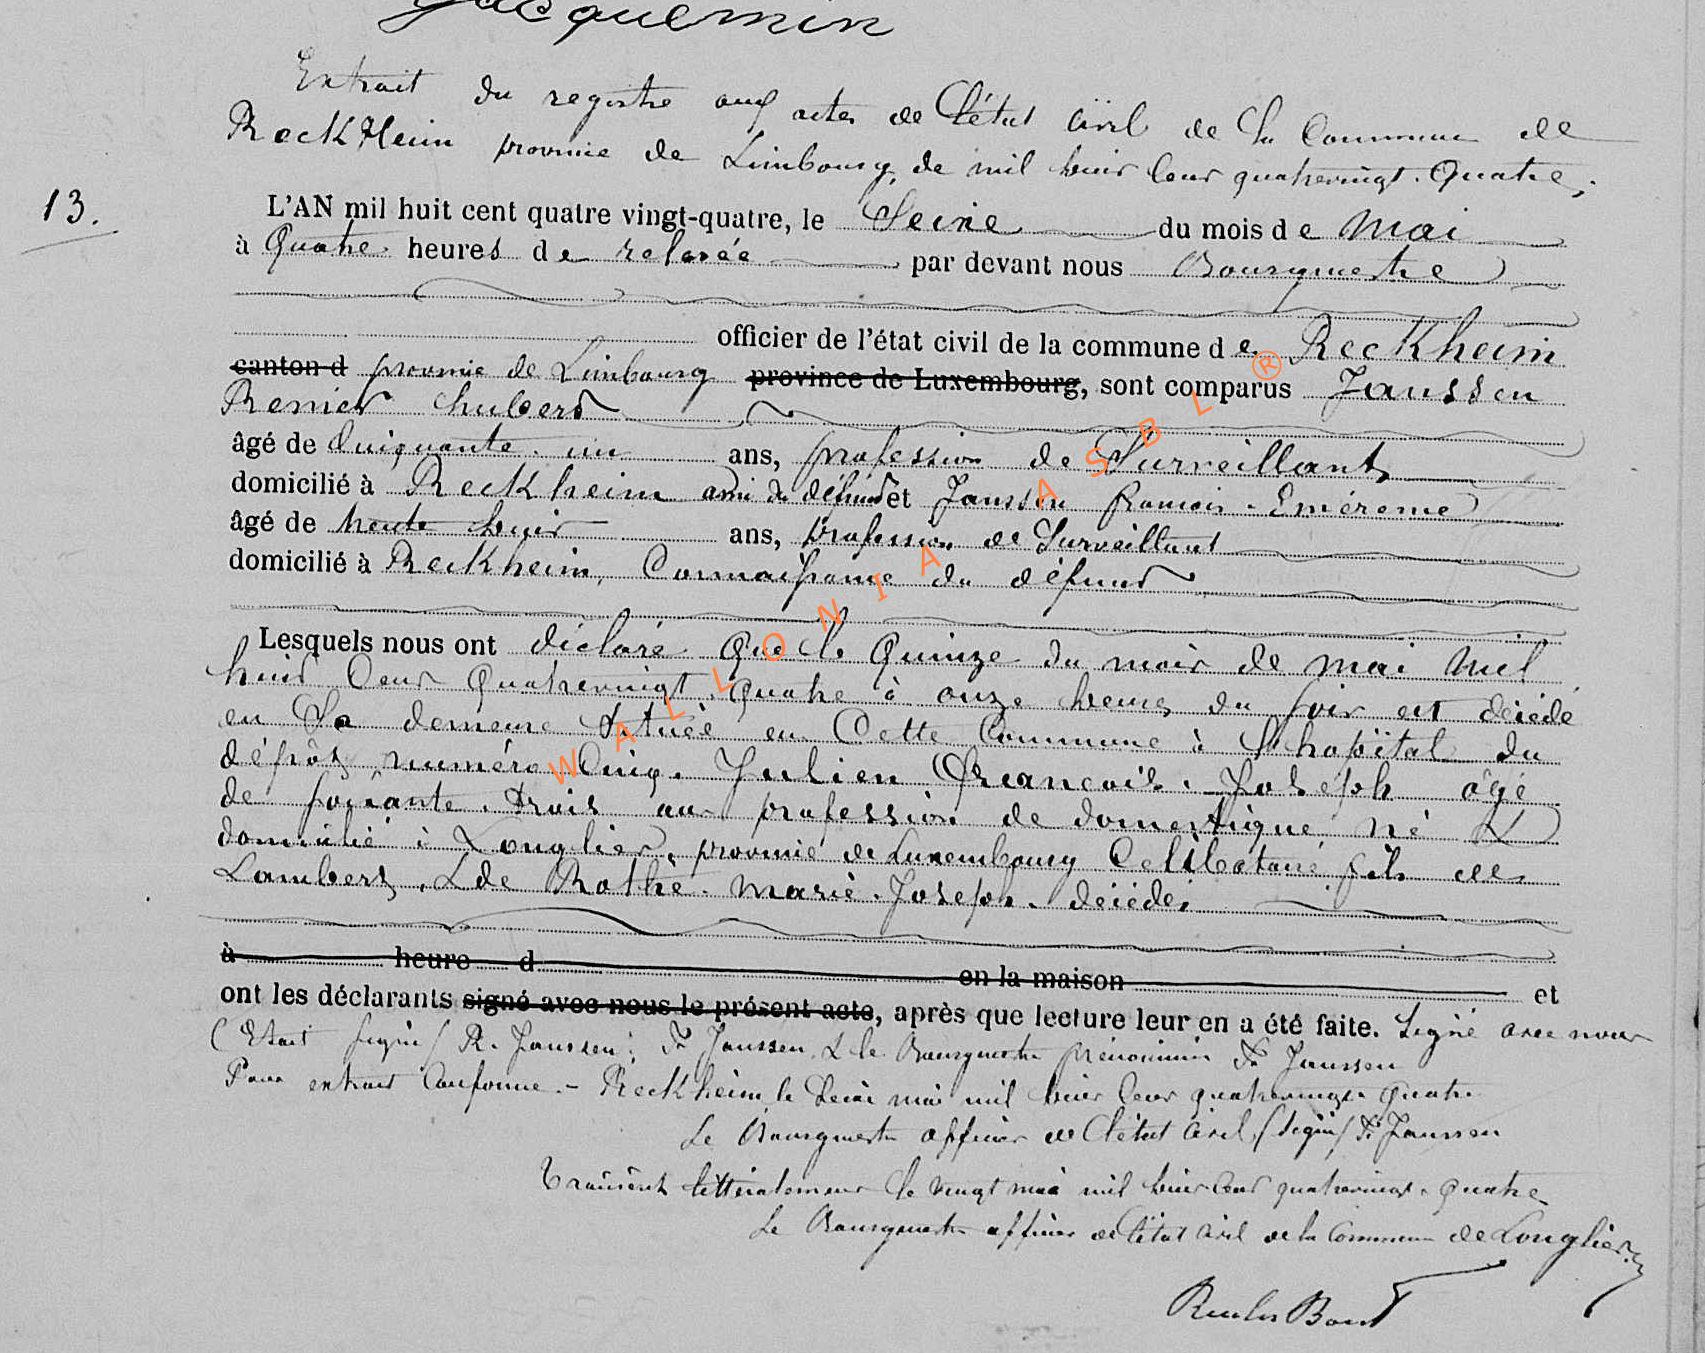 Jacquemin
Extrait du registre aux actes de l'état civil de la Commune de
Reckheim province de Limbourg, de mil huit cent quatrevingt-quatre;
13.
L'AN mil huit cent quatre vingt-quatre, le Seize du mois de mai
à Quatre heures de relevée par devant nous Bourgmestre
officier de l'état civil de la commune de Reckheim
canton d province de Limbourg province de Luxembourg, sont comparus Janssen
Renier hubert
âgé de Cinquante-un ans, profession de Surveillant,
domicilié à Reckheim ami du défunt et Janssen François-
âgé de trente huit ans, profession de Surveillant
domicilié à Reckheim, Connaissance du défunt
Lesquels nous ont déclaré que le Quinze du mois de mai mil
huit Cent Quatrevingt-quatre à onze heures du soir est décédé
en Sa demeure Située en Cette Commune à l'hopital du
dépôt, numéro Cinq. Julien François-Joseph âgé
de soixante-trois ans profession de domestique né &
domicilié à Longlier, province de Luxembourg Celibataire fils de
Lambert, & de Rothé-Marie-Joseph-décédés
à heure d en la maison et
ont les déclarants signé avec nous le présent acte, après que lecture leur en a été faite. Signé avec nous
(Etait signé) R. Janssen; Fr Janssen & le Bourgmestre prénommé Fr Janssen
Pour extrait Conforme.- Reckheim, le Seize mai mil huit Cent quatrevingt-quatre
Le Bourgmestre officier de l'état civil (signé) Fr Janssen
Transcrit littéralement le vingt mai mil huit cent quatrevingt-quatre
Le Bourgmestre officier de l'état civil de la Commune de Longlier
WALLONIA ASBL ®